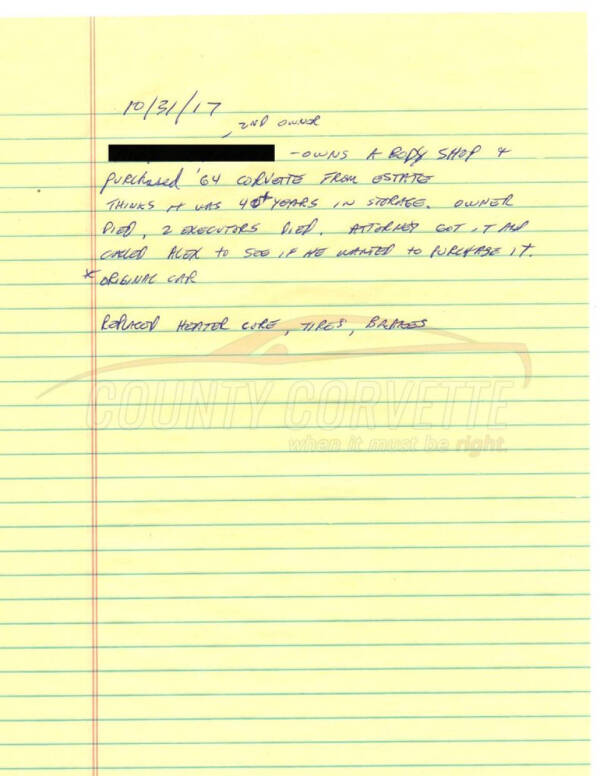 10/31/17
, 2ND OWNER
- OWNS A BODY SHOP &
PURCHASED '64 CORVETTE FROM ESTATE
THINKS IT WAS 40+ YEARS IN STORAGE. OWNER
DIED, 2 EXECUTORS DIED. ATTORNEY GOT IT AND
CALLED ALEX TO SEE IF HE WANTED TO PURCHASE IT.
* ORIGINAL CAR
REPLACED HEATER CORE, TIRES, BRAKES
COUNTY CORVETTE
when it must be right.